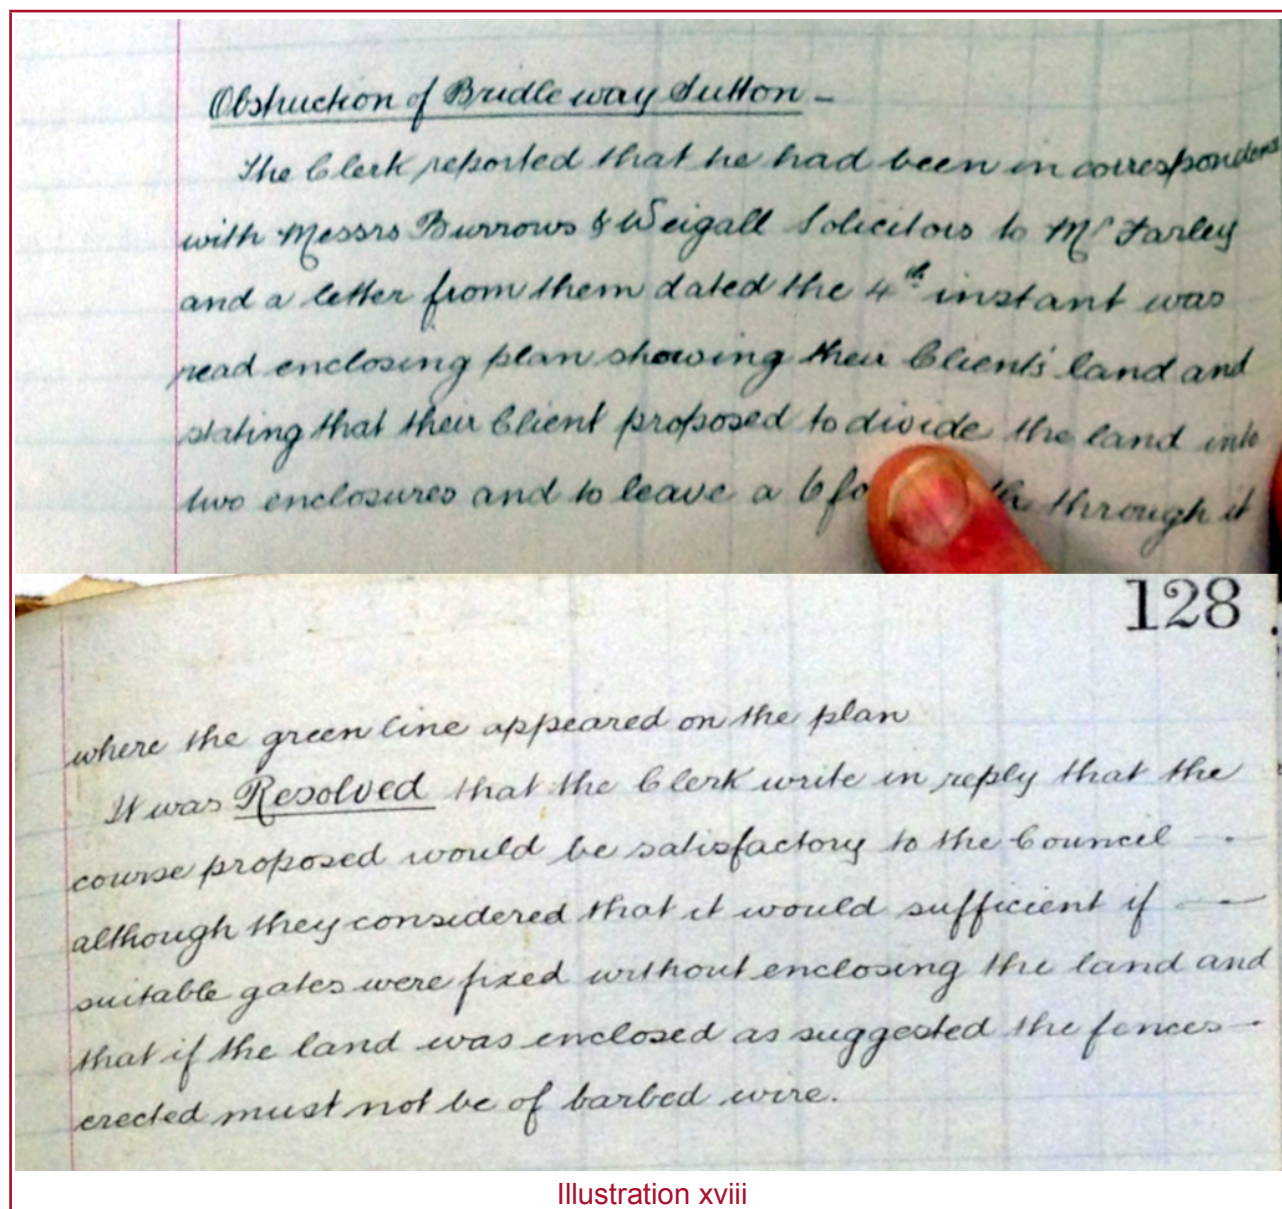 Obstruction of Bridle way Sutton -
The Clerk reported that he had been in
with Messrs Burrows & Weigall Solicitors to Mr Farley
and a letter from them dated the 4th instant was
read enclosing plan showing their Client's land and
stating that their Client proposed to divide the land into
two enclosures and to leave a 6 through it
128
where the green line appeared on the plan
It was Resolved that the Clerk write in reply that the
course proposed would be satisfactory to the Council
although they considered that it would sufficient if
suitable gates were fixed without enclosing the land and
that if the land was enclosed as suggested the fences
erected must not be of barbed wire.
Illustration xviii